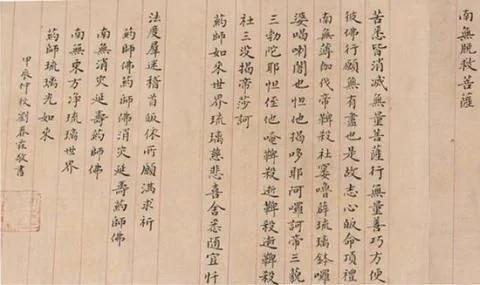 南無脫救菩薩
苦悉皆消滅無量菩薩行無量善巧方便
彼佛行願無有盡也是故志心皈命頂禮
南無薄伽伐帝鞞殺社窶嚕薜琉璃鉢囉
婆喝喇闍也怛他揭多耶阿囉訶帝三藐
三勃陀耶怛姪他唵鞞殺逝鞞殺逝鞞殺
社三沒揭帝莎訶
藥師如來世界琉璃慈悲喜舍悉随宜忏
法度羣迷稽首皈依所願满求祈
藥師佛藥師佛消灾延壽藥師佛
南無消灾延壽藥師佛
南無東方净琉璃世界
藥師琉璃光如来
甲辰仲秋劉春霖敬書